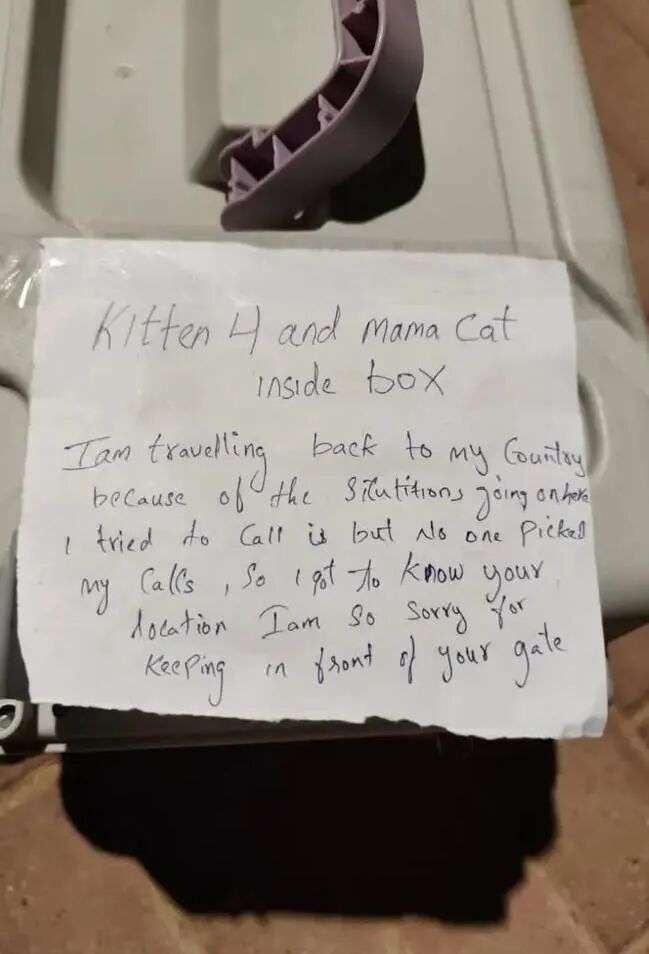 Kitten 4 and mama cat
inside box
I am travelling back to my Country
because of the Situtitions going on here
I tried to Call is but No one Picked
my Calls, So I got to know your
location I am So Sorry for
Keeping in front of your gate